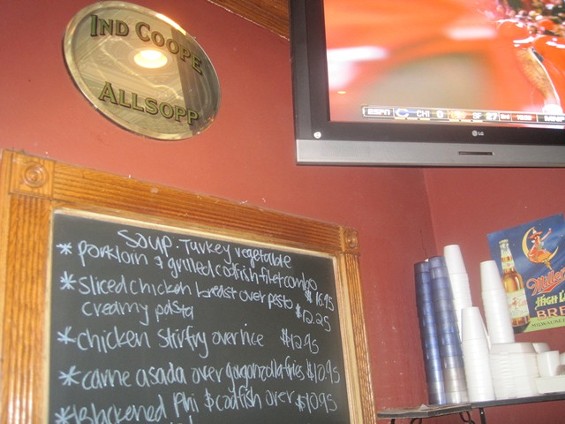 IND COOPE
ALLSOPP
ESPN CHI 0 SF
LG
SOUP. Turkey vegetable
* porkloin & grilled codfish filet combo
$16.95
* Sliced chicken breast over pesto
creamy pasta $12.25
* chicken stirfry over rice $12.95
* carne asada over gorgonzola fries $10.95
* Blackened Phi $ codfish over $10.95
Miller
HIGH LIFE